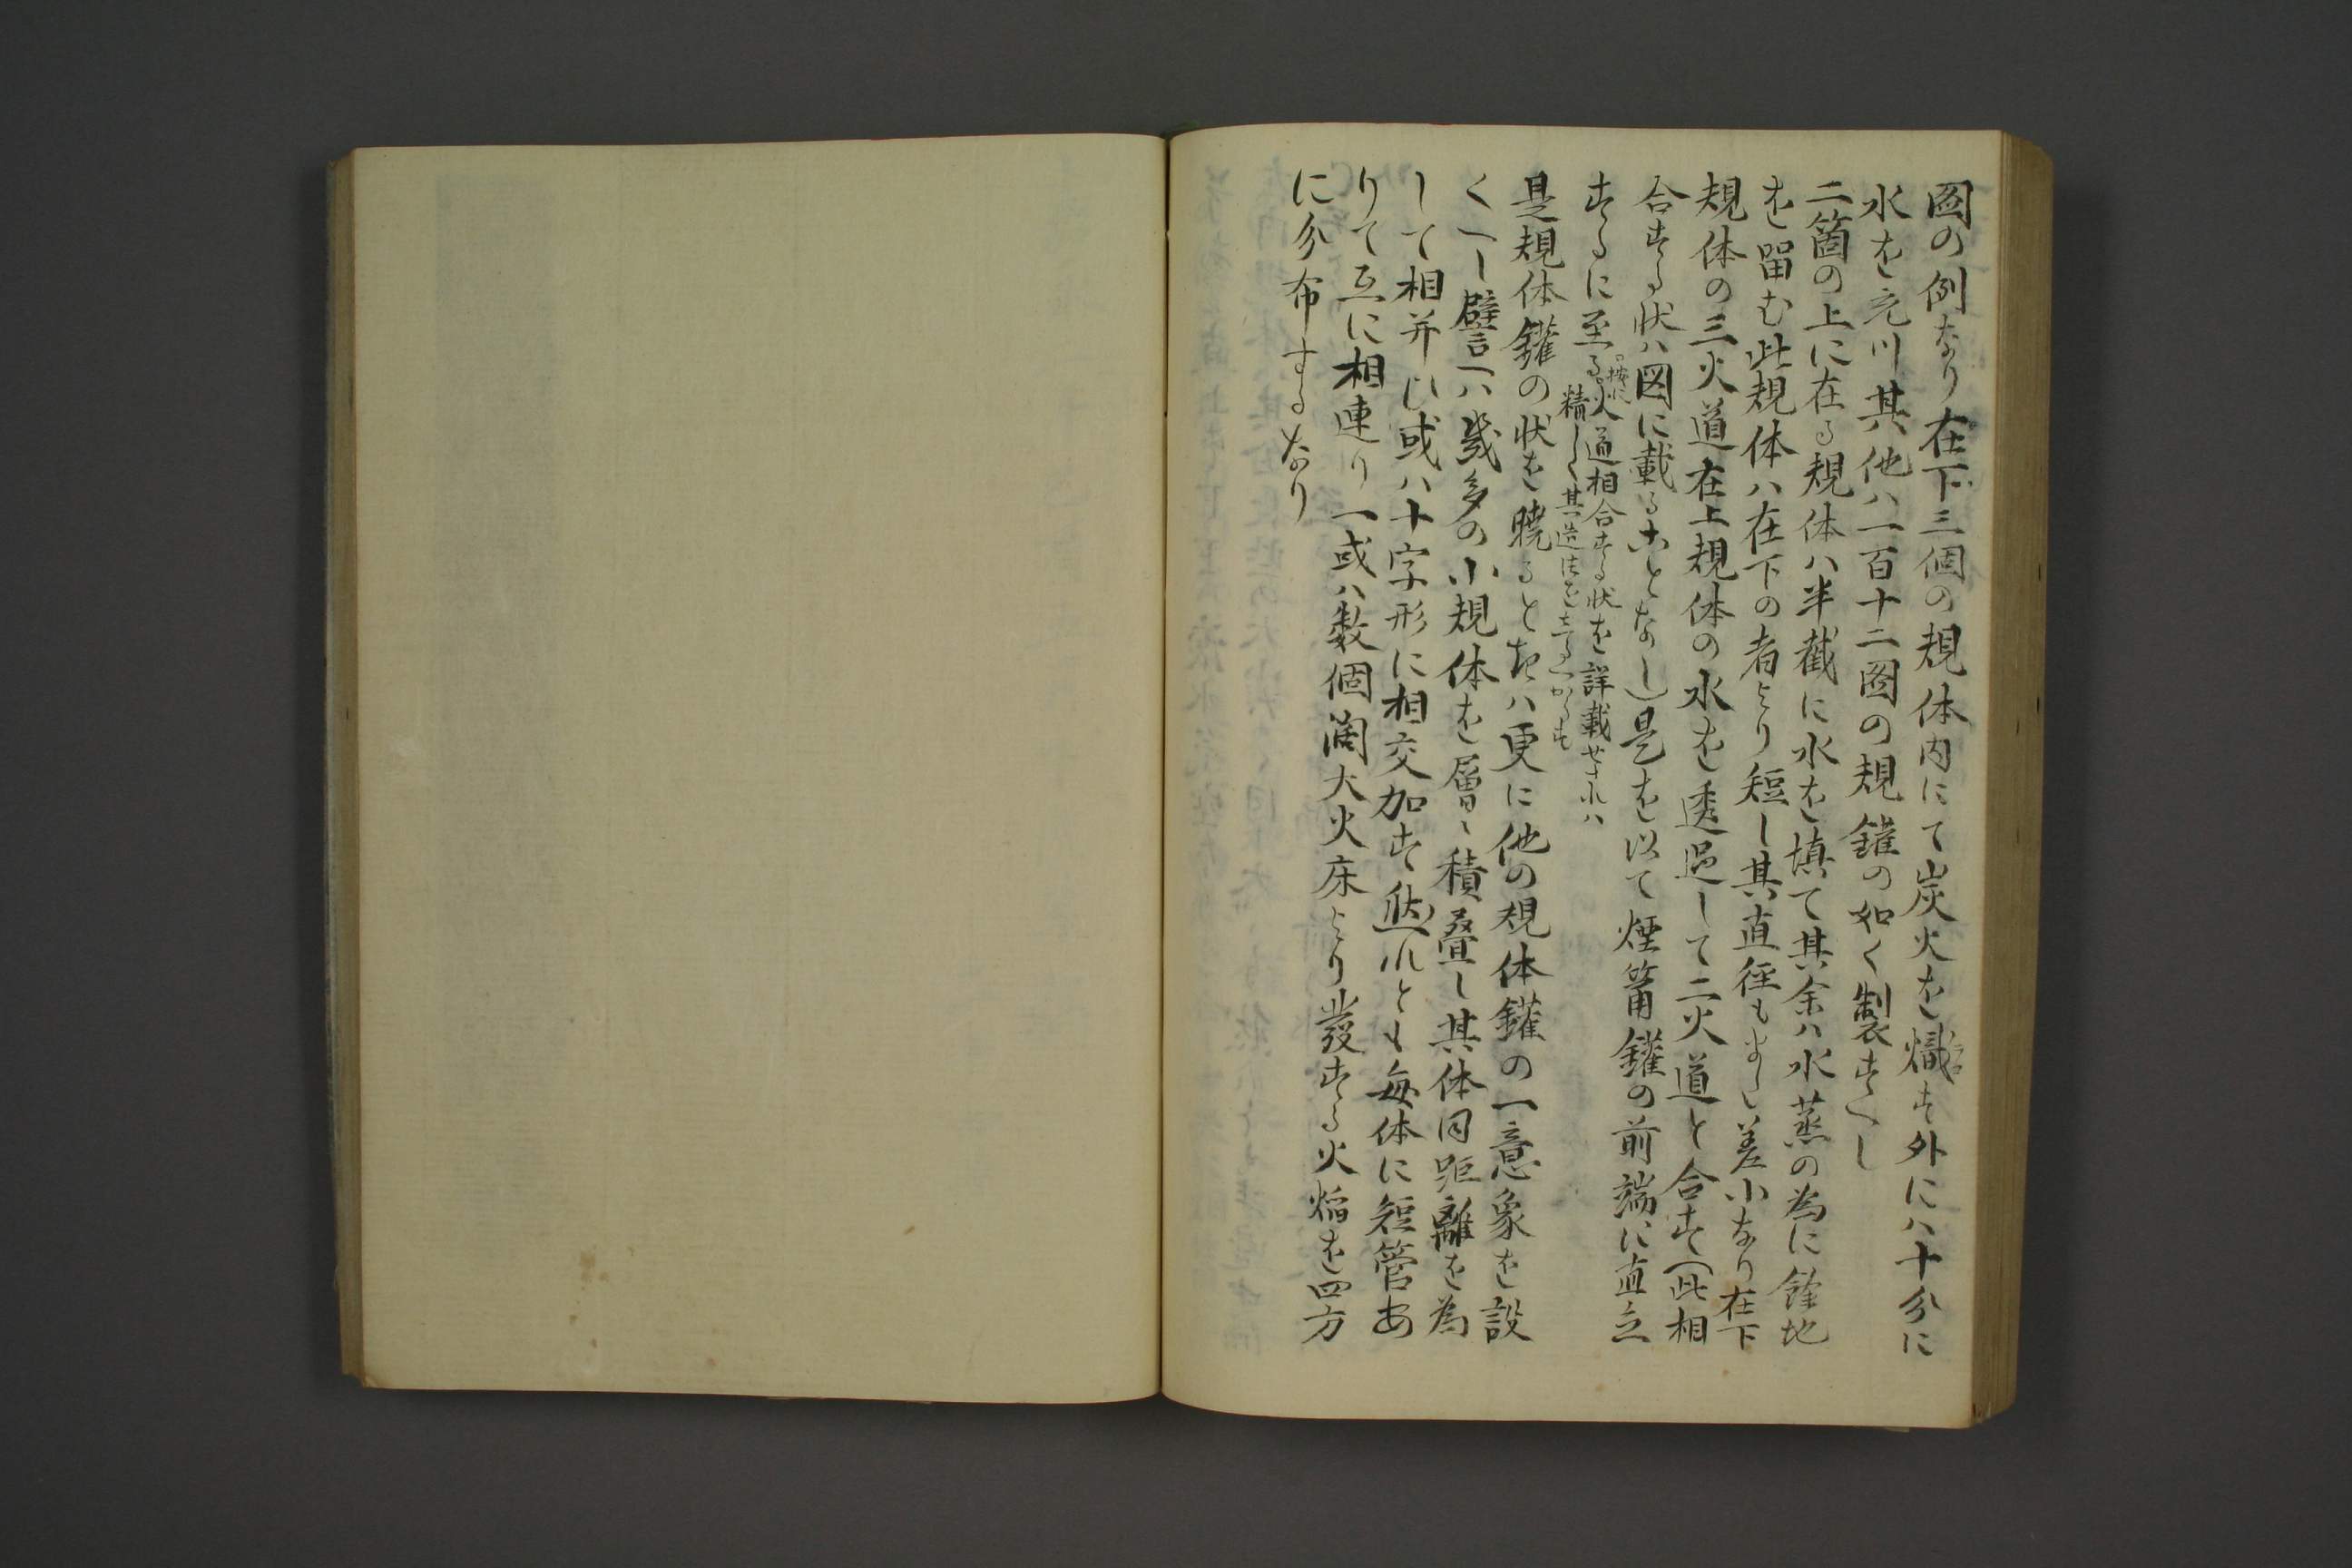 圖の例なり在下三個の規体内にて炭火を熾す外にハ十分に
水を充つ其他ハ一百十二圖の規鑵の如く製すへし
二箇の上に在る規体ハ半截に水を填て其余ハ水蒸の為に餘地
を留む此規体ハ在下の者より短し其直径も少しく差小なり在下
規体の三火道在上規体の水を透過して二火道と合す(此相
合する状ハ図に載ることなし)是を以て煙筩鑵の前端に直立
するに至る
按に火道相合する状を詳載せされハ
精しく其造法を知るへからす
是規体鑵の状を暁るときハ更に他の規体鑵の一意象を設
くへし譬へハ幾多の小規体を層々積疊し其体同距離を為
して相并ひ或ハ十字形に相交加す然れとも毎体に短管あ
りて互に相連り一或ハ数個闊大火床より發する火焔を四方
に分布するなり